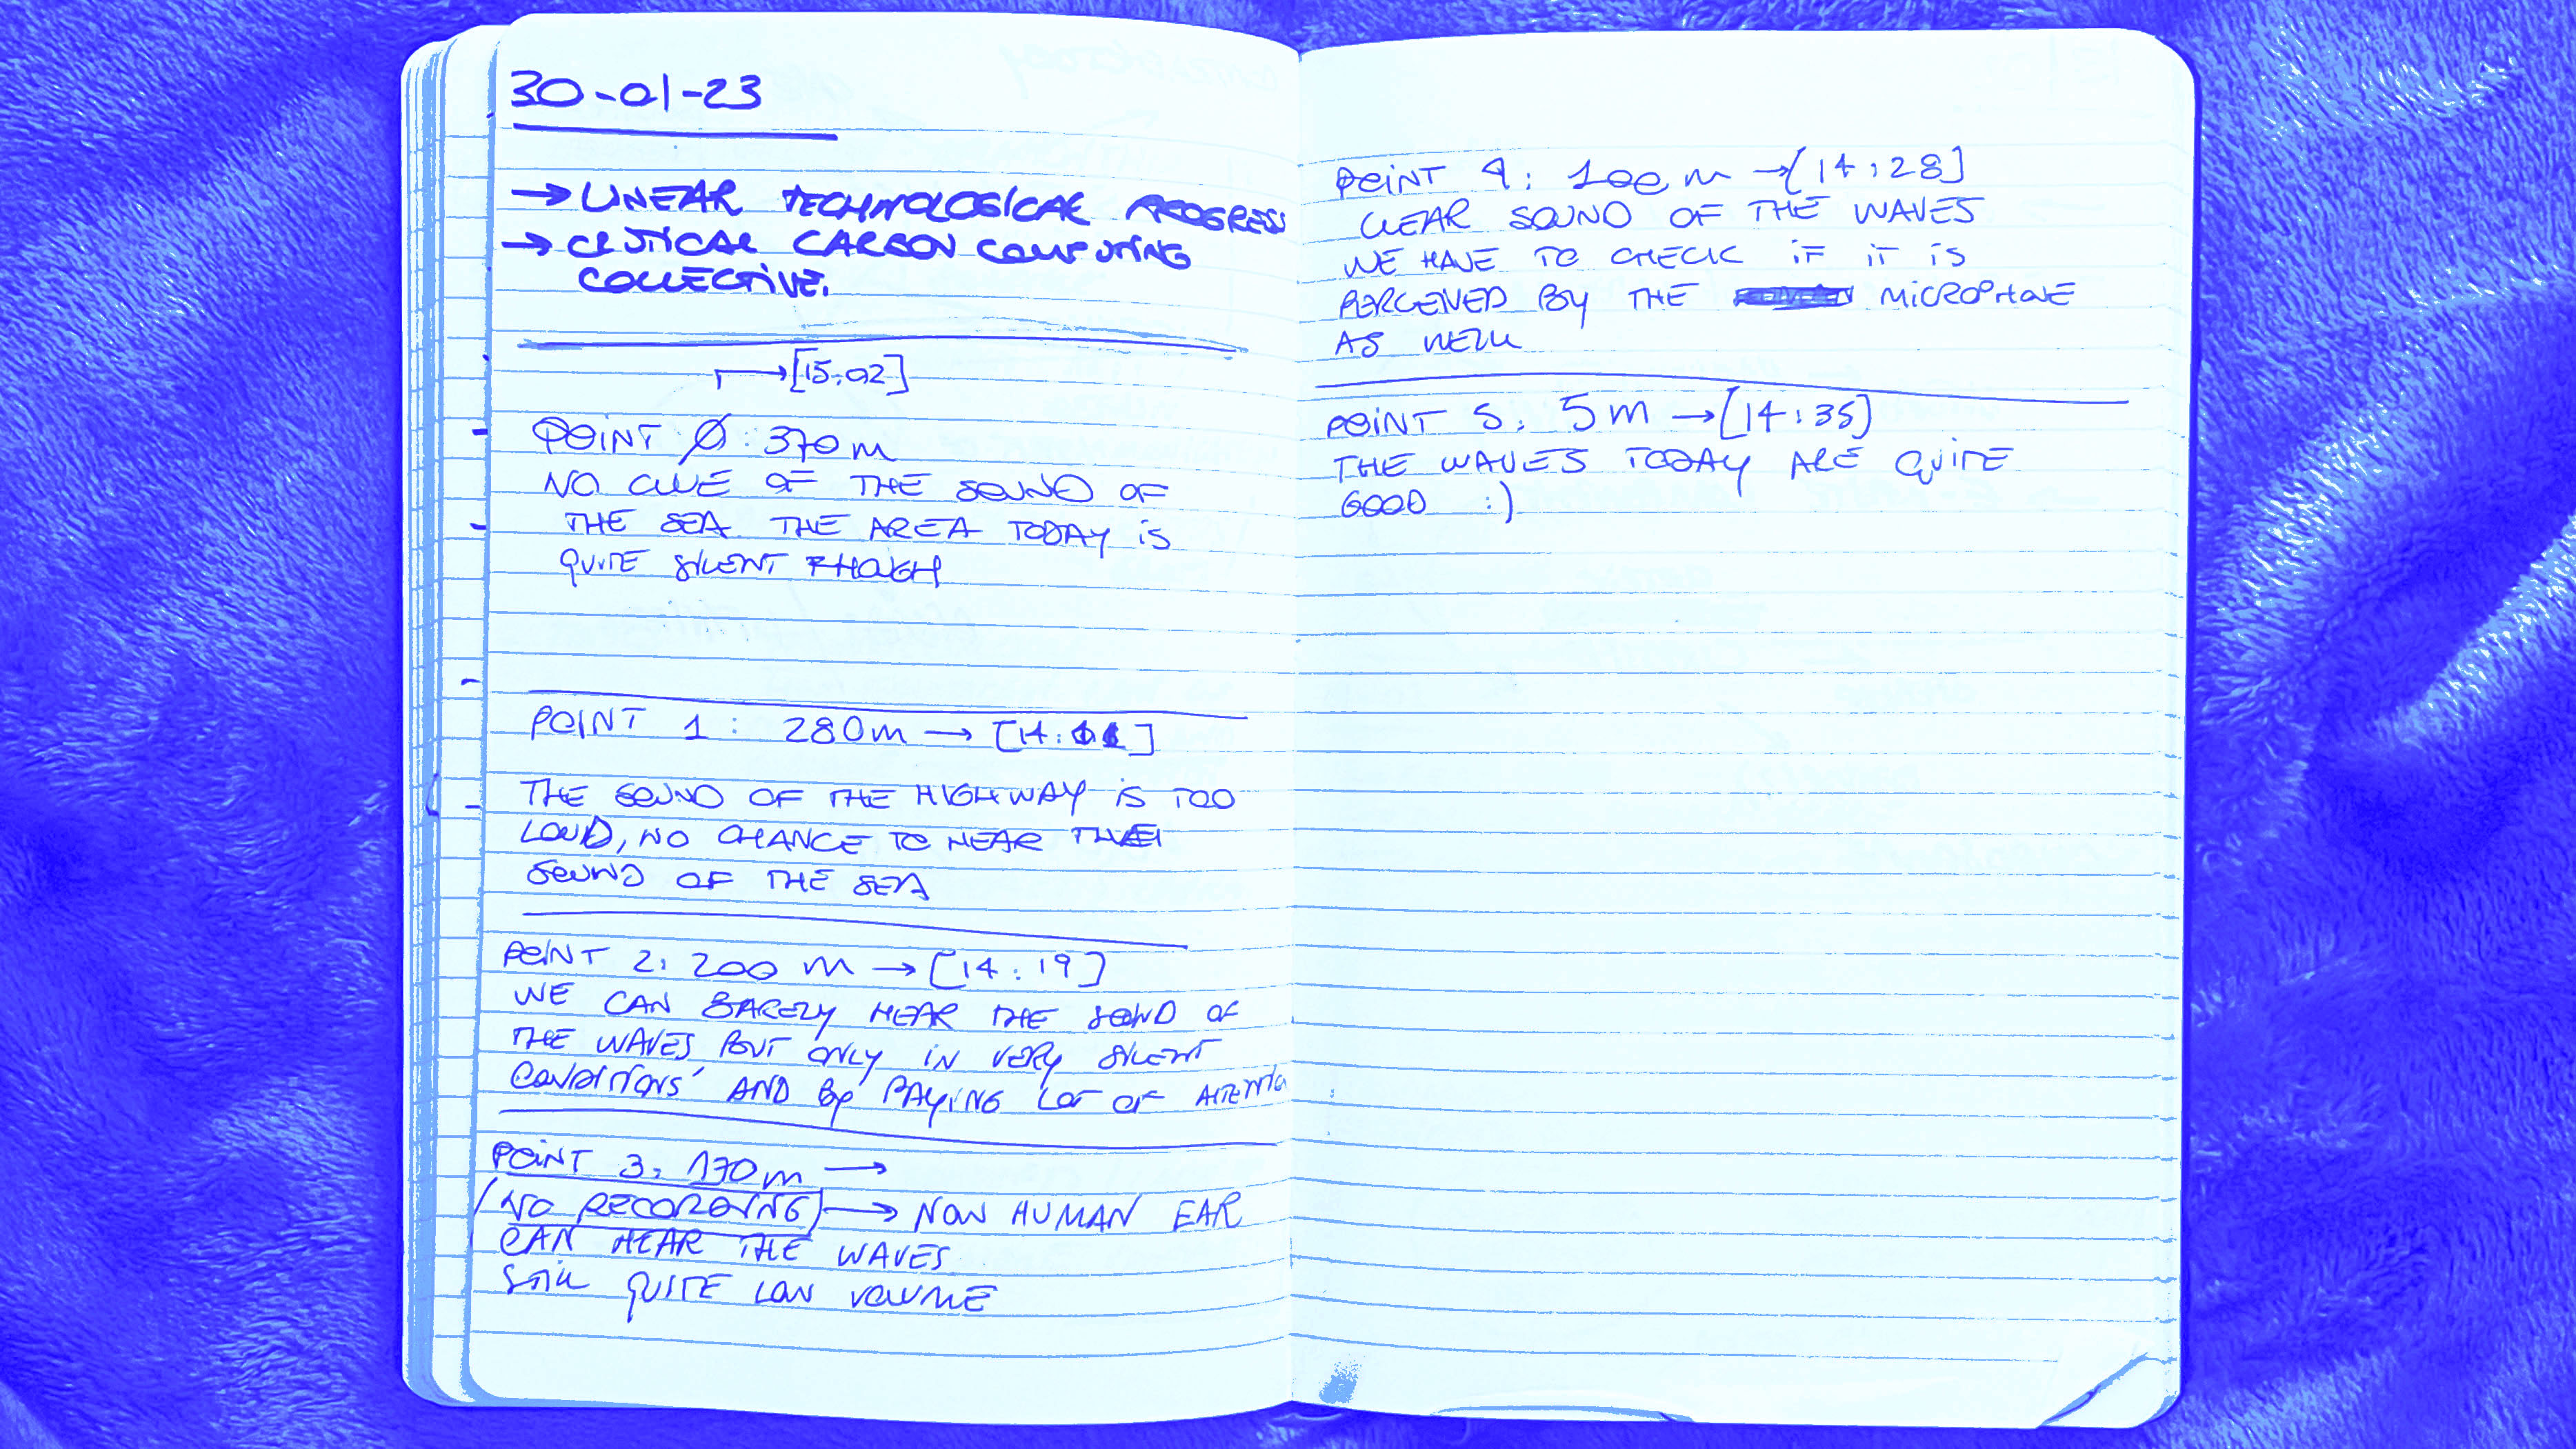 30-01-23
→ LINEAR TECHNOLOGICAL PROGRESS
→ CRITICAL CARBON COMPUTING
COLLECTIVE.
→[15:02]
POINT Ø: 370m
NO CLUE OF THE SOUND OF
THE SEA. THE AREA TODAY IS
QUITE SILENT THOUGH
POINT 1: 280m → [14:11]
THE SOUND OF THE HIGHWAY IS TOO
LOUD, NO CHANCE TO HEAR THE
SOUND OF THE SEA
POINT 2: 200 m → [14:19]
WE CAN BARELY HEAR THE SOUND OF
THE WAVES BUT ONLY IN VERY SILENT
CONDITIONS AND BY PAYING LOT OF
POINT 3: 170m →
(NO RECORDING) → NOW HUMAN EAR
CAN HEAR THE WAVES
STILL QUITE LOW VOLUME
POINT 4: 100 m → [14:28]
CLEAR SOUND OF THE WAVES
WE HAVE TO CHECK IF IT IS
PERCEIVED BY THE MICROPHONE
AS WELL
POINT 5: 5m → [14:35]
THE WAVES TODAY ARE QUITE
GOOD :)